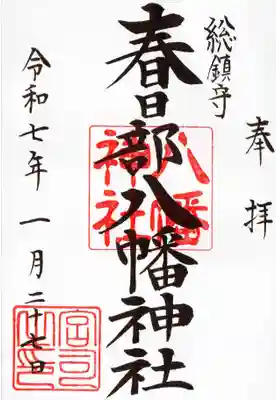 奉拝
総鎮守
春日部八幡神社
八幡神社
令和七年一月二十七日
宮司之印